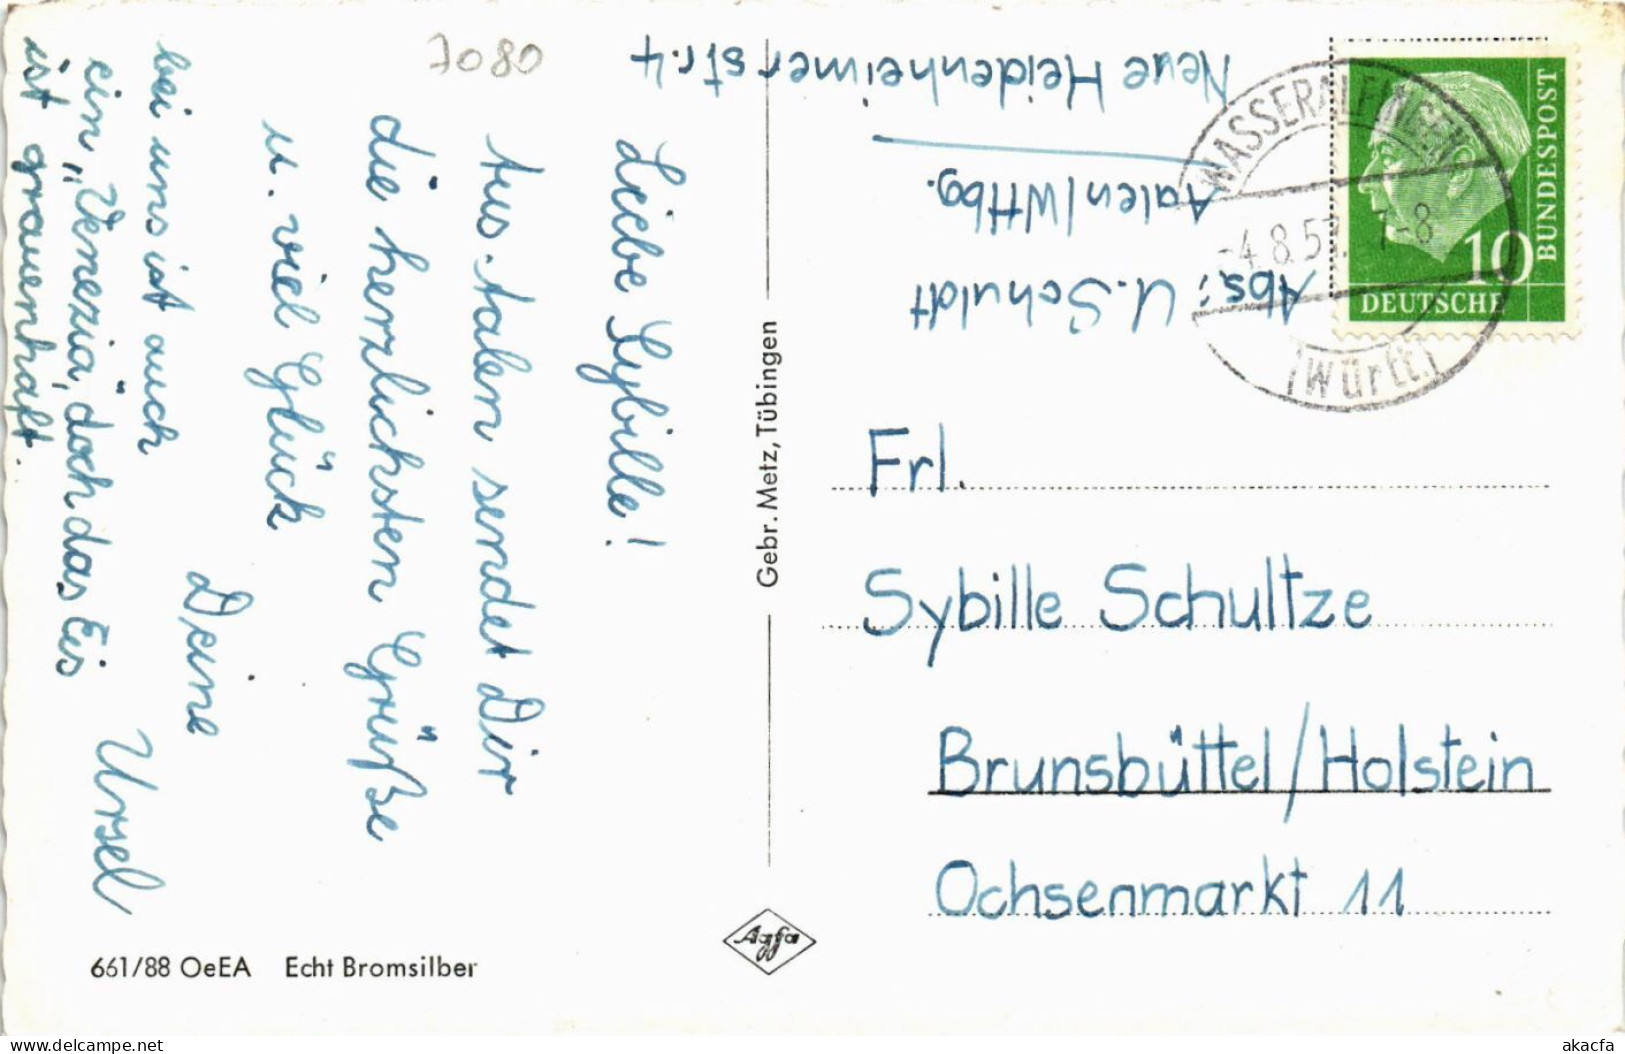 7080
Liebe Sybille!
Aus Aalen sendet Dir
die herzlichsten Grüße
u. viel Glück
Deine
Ursel
bei uns ist auch
ein „Venezia", doch das Eis
ist grauenhaft.
661/88 OeEA Echt Bromsilber
Gebr. Metz, Tübingen
Agfa
Abs.: U. Schuldt
Aalen/Wttbg.
Neue Heidenheimerstr. 4
WASSERALFINGEN
-4.8.57. 7-8
(Württ.)
10
DEUTSCHE
BUNDESPOST
Frl.
Sybille Schultze
Brunsbüttel/Holstein
Ochsenmarkt 11
akacfa
delcampe.net